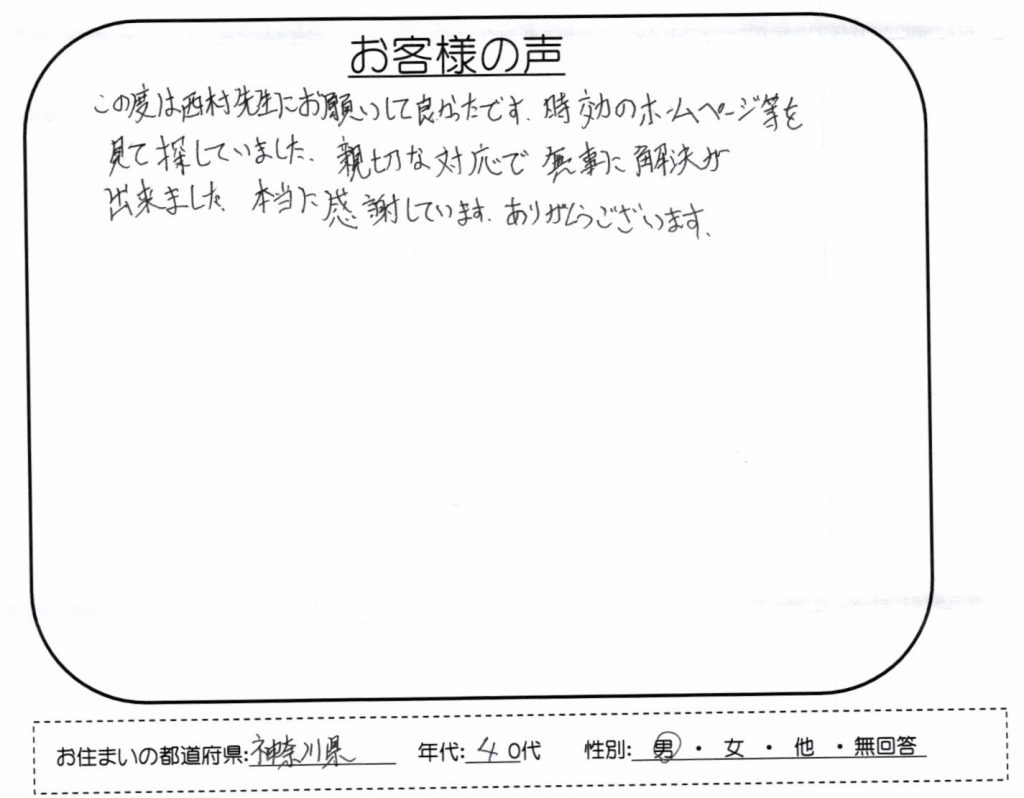 お客様の声
この度は西村先生にお願いして良かったです. 時効のホームページ等を
見て探していました. 親切な対応で無事に解決が
出来ました 本当に感謝しています. ありがとうございます.
お住まいの都道府県:神奈川県 年代:40代 性別: 男・女・他・無回答